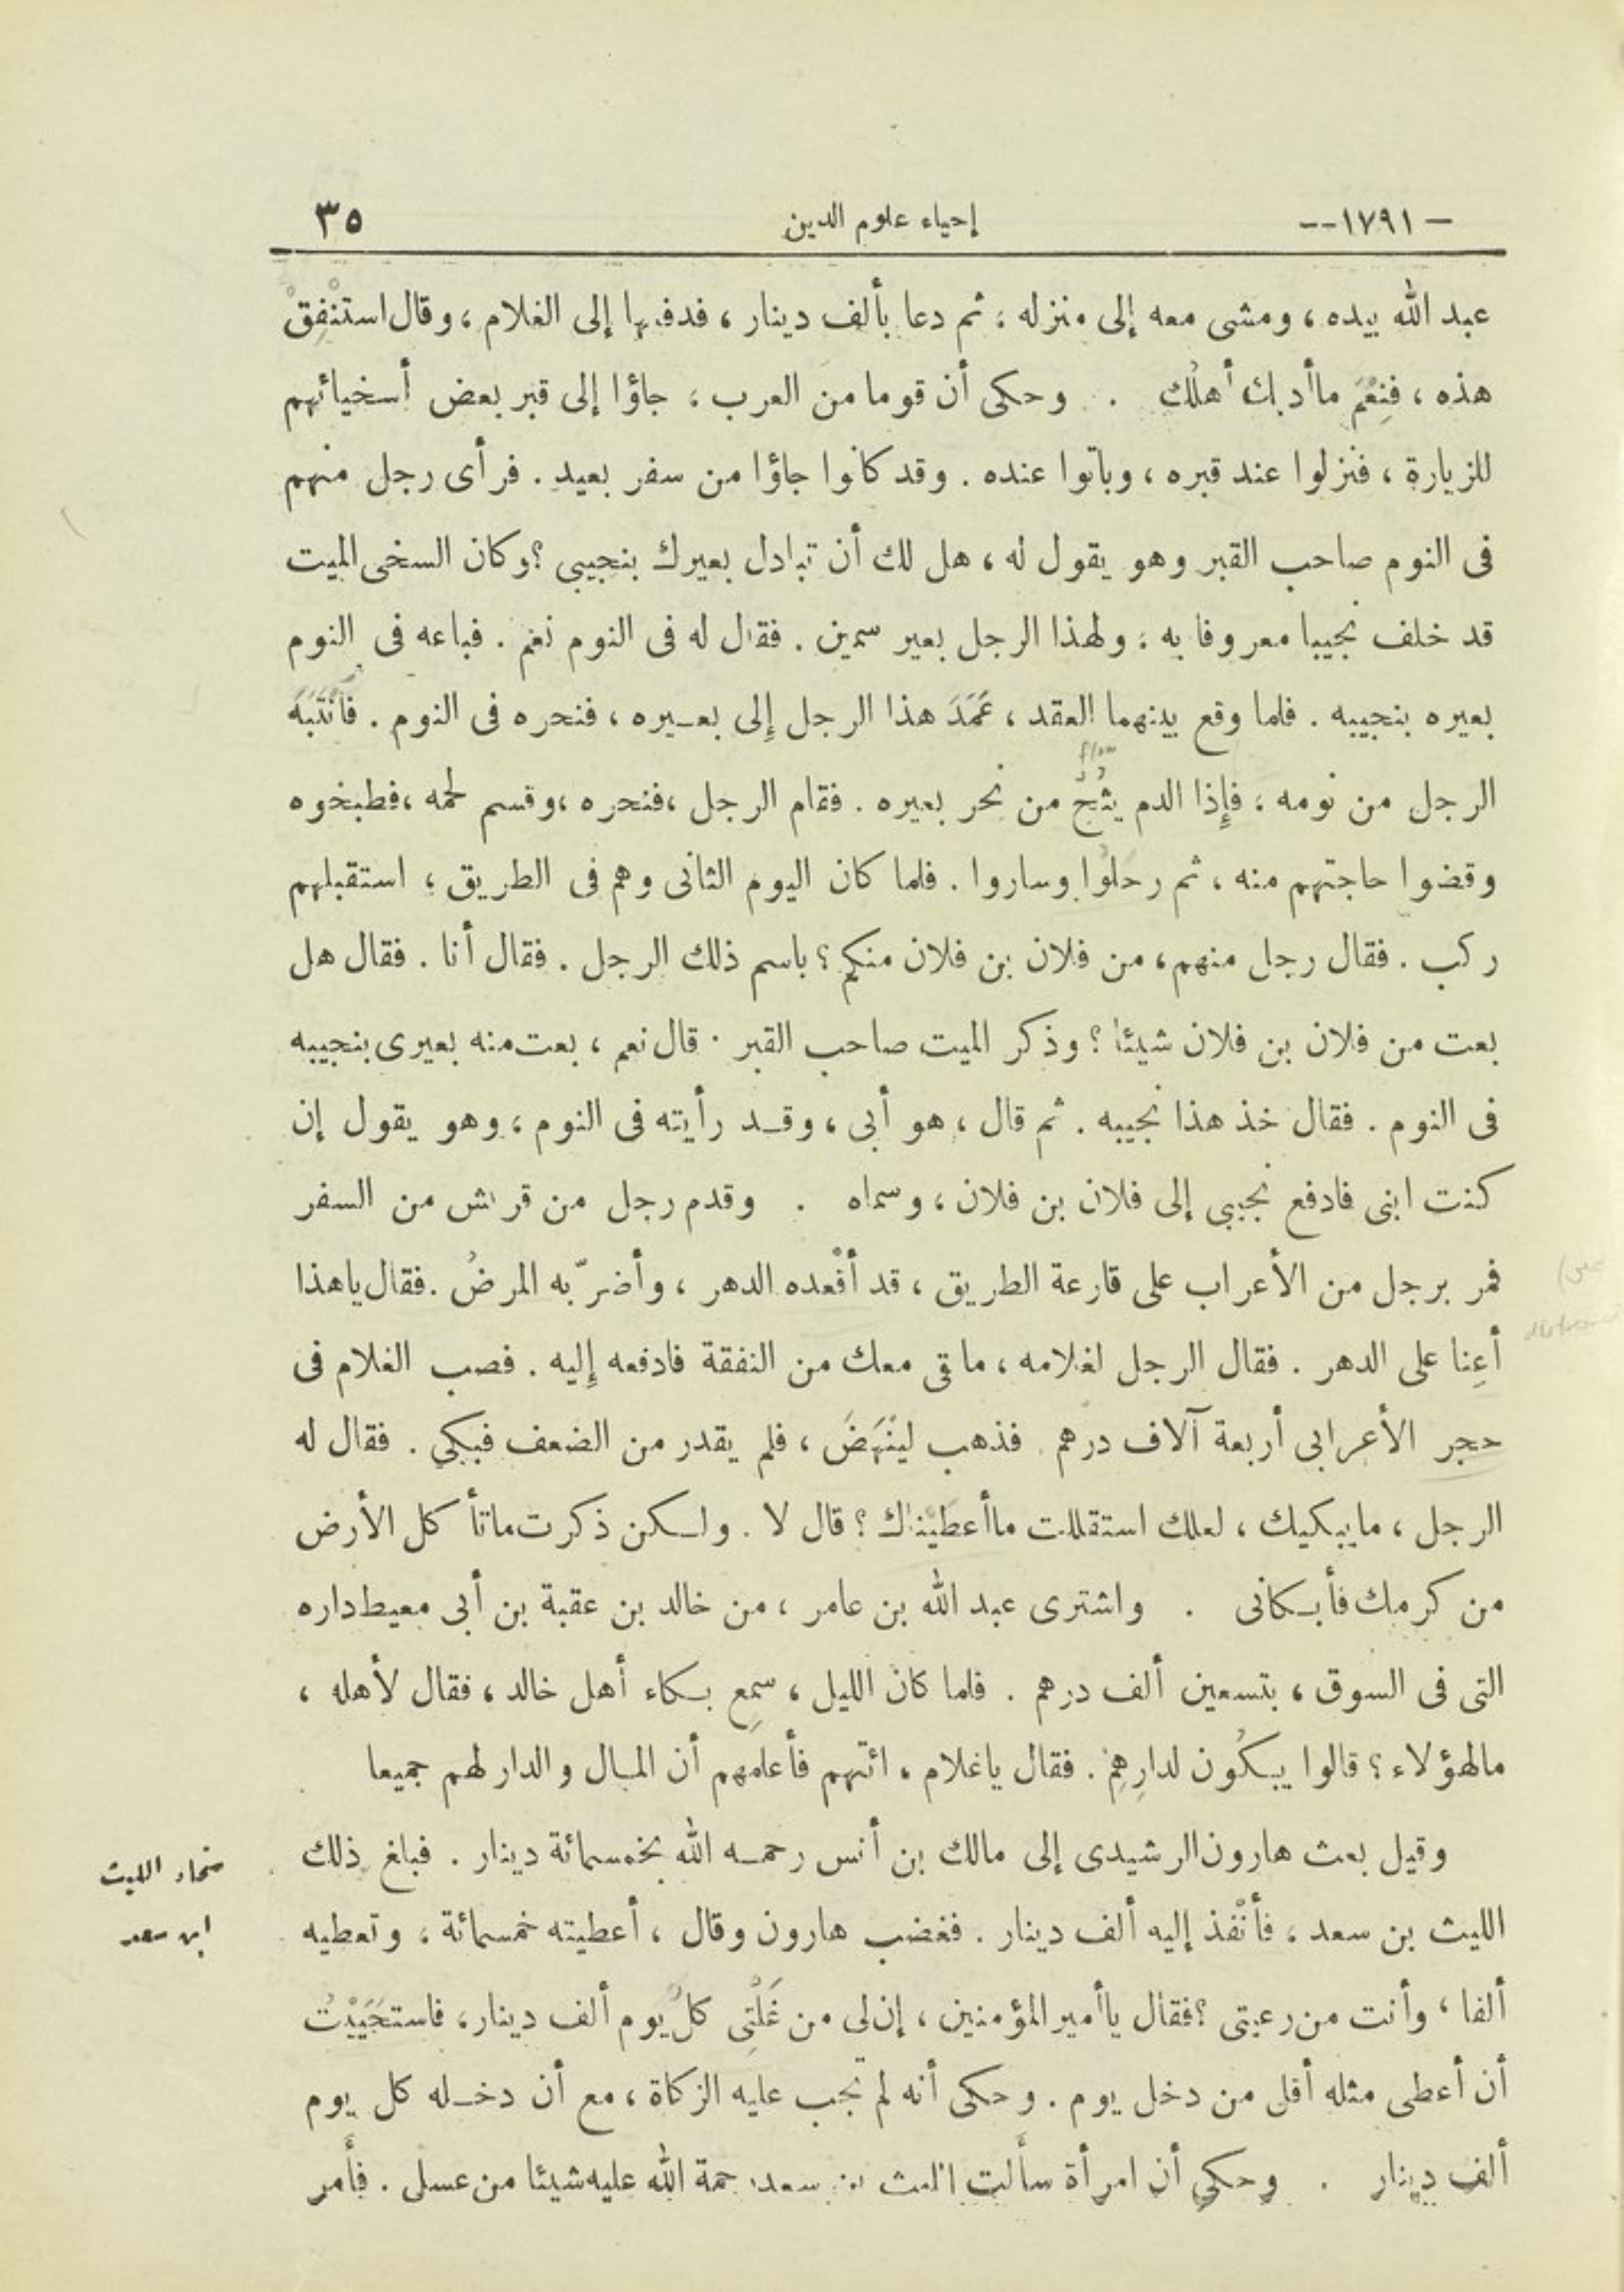 — ١٧٩١ -- إحياء علوم الدين ٣٥
عبد الله بيده ، ومشى معه إلى منزله ؛ ثم دعا بألف دينار ، فدفعها إلى الغلام ، وقال استنْفِقْ
هذه ، فنِعْمَ ما أدبك أهلك . وحكى أن قوما من العرب ؛ جاؤا إلى قبر بعض أسخيائهم
للزيارة ، فنزلوا عند قبره ، وباتوا عنده . وقد كانوا جاؤا من سفر بعيد . فرأى رجل منهم
فى النوم صاحب القبر وهو يقول له ، هل لك أن تبادل بعيرك بنجيبى ؟ وكان السخى الميت
قد خلف نجيبا معروفا به ؛ ولهذا الرجل بعير سمين . فقال له فى النوم نعم . فباعه فى النوم
بعيره بنجيبه . فلما وقع بينهما العقد ، عَمَدَ هذا الرجل إِلى بعـيره ، فنحره فى النوم . فانْتَبَهَ
flow
الرجل من نومه ؛ فإِذا الدم يثُجُّ من نحر بعيره . فقام الرجل ، فنحره ، وقسم لحمه ، فطبخوه
وقضوا حاجتهم منه ، ثم رحلوا وساروا . فلما كان اليوم الثانى وهم فى الطريق ؛ استقبلهم
ركب . فقال رجل منهم ، من فلان بن فلان منكم ؟ باسم ذلك الرجل . فقال أنا . فقال هل
بعت من فلان بن فلان شيئا ؟ وذكر الميت صاحب القبر . قال نعم ، بعت منه بعيرى بنجيبه
فى النوم . فقال خذ هذا نجيبه . ثم قال ، هو أبى ، وقـد رأيته فى النوم ، وهو يقول إن
كنت ابنى فادفع نجيبى إلى فلان بن فلان ، وسماه . وقدم رجل من قريش من السفر
فمر برجل من الأعراب على قارعة الطريق ، قد أقْعده الدهر ، وأضرّ به المرضُ . فقال ياهذا
أعِنا على الدهر . فقال الرجل لغلامه ، ما بقى معك من النفقة فادفعه إِليه . فصب الغلام فى
حجر الأعرابى أربعة آلاف درهم . فذهب لينْهَضَ ، فلم يقدر من الضعف فبكى . فقال له
الرجل ، ما يبكيك ، لعلك استقللت ما أعطيْناك ؟ قال لا . ولـكن ذكرت ماتأكل الأرض
من كرمك فأبـكانى . واشترى عبد الله بن عامر ، من خالد بن عقبة بن أبى معيط داره
التى فى السوق ، بتسعين ألف درهم . فلما كان الليل ، سمِع بـكاء أهل خالد ، فقال لأهله ،
مالهؤلاء ؟ قالوا يبـكُون لدارِهِمْ . فقال ياغلام ، ائتهم فأعلمهم أن المـال والدار لهم جميعا
وقيل بعث هارون الرشيدى إلى مالك بن أنس رحمـه الله بخمسمائة دينار . فبلغ ذلك
سخاء الليث
الليث بن سعد ، فأنْفذ إليه ألف دينار . فغضب هارون وقال ، أعطيته خمسمائة ، وتعطيه
ابن سعد
ألفا ، وأنت من رعيتى ؟ فقال ياأمير المؤمنين ، إن لى من غَلَّتِى كلّ يوم ألف دينار ، فاستحَيَيْتُ
أن أعطى مثله أقل من دخل يوم . وحكى أنه لم تجب عليه الزكاة ، مع أن دخـله كل يوم
ألف دينار . وحكى أن امرأة سألت الليث بن سعد رحمة الله عليه شيئا من عسل . فأمر